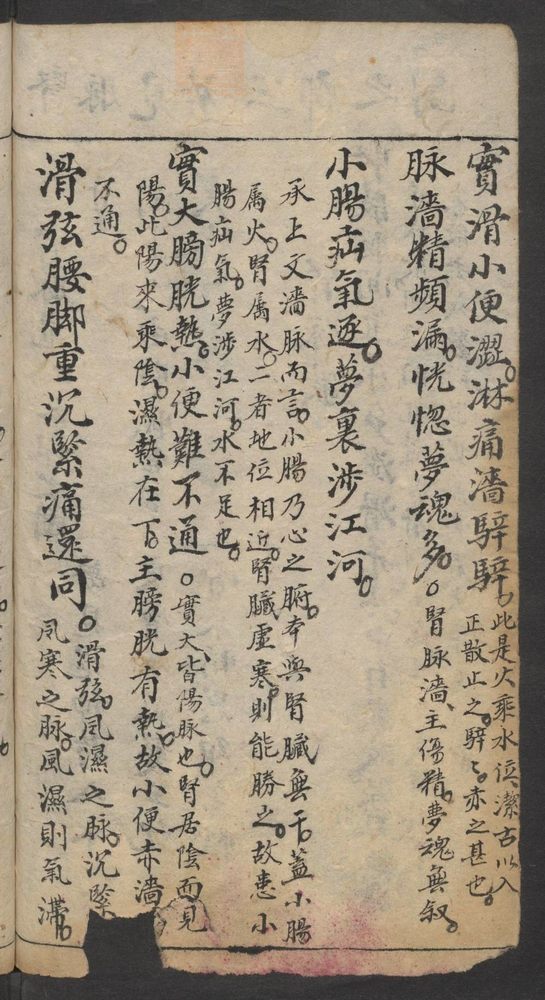 實滑小便澀。淋痛濇騂騂。此是火乘水位、潔古以入
正散止之。騂〻。赤之甚也。
脉濇精頻漏。恍惚夢魂多。○腎脉濇、主傷精。夢魂無叙。
小腸疝氣逐。夢裏涉江河。
承上文濇脉而言。小腸乃心之腑。本與腎臟無干。蓋小腸
属火。腎属水。二者地位相近。腎臟虛寒。則能勝之。故患小
腸疝氣。夢涉江河。水不足也。
實大膀胱熱。小便難不通。○實大皆陽脉也。腎居陰而見
陽。此陽來乘陰。濕熱在下。主膀胱有熱。故小便赤濇
不通。
滑弦腰脚重沉緊痛還同。○滑弦。風濕之脉。沉緊
風寒之脉。風濕則氣滯。